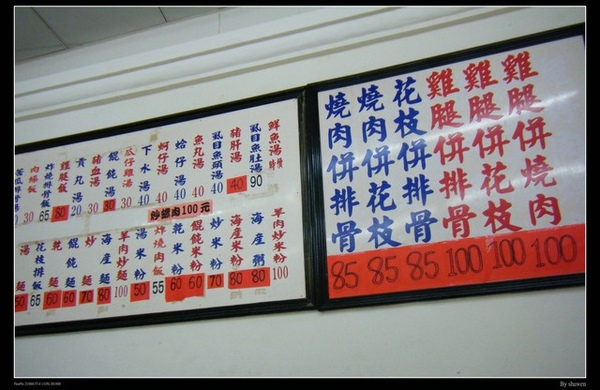 雞腿併燒肉 100
雞腿併花枝 100
雞腿併排骨 100
花枝併排骨 85
燒肉併花枝 85
燒肉併排骨 85
鮮魚湯
虱目魚肚湯 90
豬肝湯 40
虱目魚頭湯 40
魚丸湯 40
蛤仔湯 40
蚵仔湯 40
下水湯 40
瓜仔雞湯 30
餛飩湯 30
豬血湯 30
貢丸湯 20
雞腿飯 80
排骨飯 65
肉燥飯 30
苦瓜排骨湯
肉100元
羊肉炒米粉 100
海產粥 80
海產米粉 80
炒米粉 70
餛飩米粉 60
乾米粉 60
炸燒肉飯 55
湯米粉 50
羊肉炒麵 100
海產麵 80
炒麵 70
餛飩麵 60
乾麵 60
花枝排飯 65
湯麵 50
By shuwen